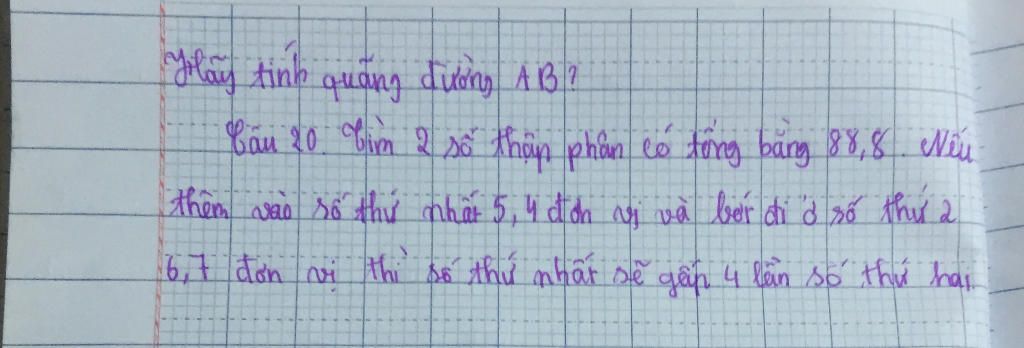 Hãy tính quãng đường AB?
Câu 20. Tìm 2 số thập phân có tổng bằng 88,8. Nếu
thêm vào số thứ nhất 5,4 đơn vị và bớt đi ở số thứ 2
6,7 đơn vị thì số thứ nhất sẽ gấp 4 lần số thứ hai.